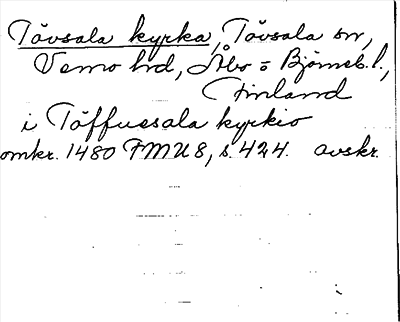 Tövsala kyrka, Tövsala sn,
Vemo hd, Åbo o Björneb. l.,
Finland
i Töffuesala kyrkio
omkr. 1480 FMU 8, s. 424. avskr.